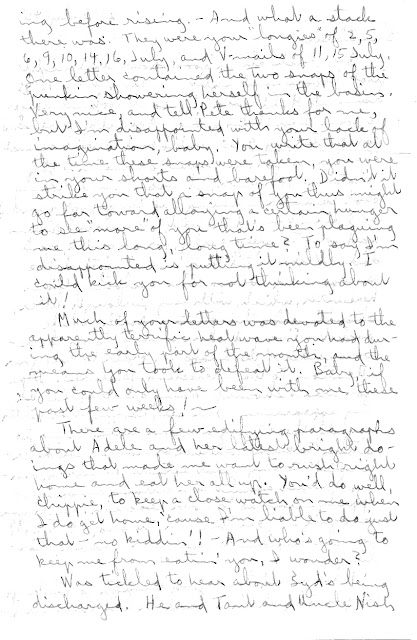 ing before rising. - And what a stack
there was. They were your "longies" of 2, 5,
6, 9, 10, 14, 16, July, and V-mails of 11, 15 July.
One letter contained the two snaps of the
punkin showering herself in the basin.
Very nice, and tell Pete thanks for me,
but I'm disappointed with your lack of
imagination, baby. You write that at
the time these snaps were taken, you were
in your shorts and barefoot. Didn't it
strike you that a snap of you thus might
go far toward allaying a certain hunger
to see "more" of you that's been plaguing
me this long, long time? To say I'm
disappointed is putting it mildly. I
could kick you for not thinking about
it!
Much of your letters was devoted to the
apparently terrific heat wave you had dur-
ing the early part of the month, and the
means you took to defeat it. Baby, if
you could only have been with me these
past few weeks! ~
There are a few edifying paragraphs
about Adele and her latest bright do-
ings that made me want to rush right
home and eat her all up. You'd do well,
chippie, to keep a close watch on me when
I do get home, 'cause I'm liable to do just
that - no kiddin'!! - And who's going to
keep me from eatin' you, I wonder?
Was tickled to hear about Syd's being
discharged. He and Tant and Uncle Nish